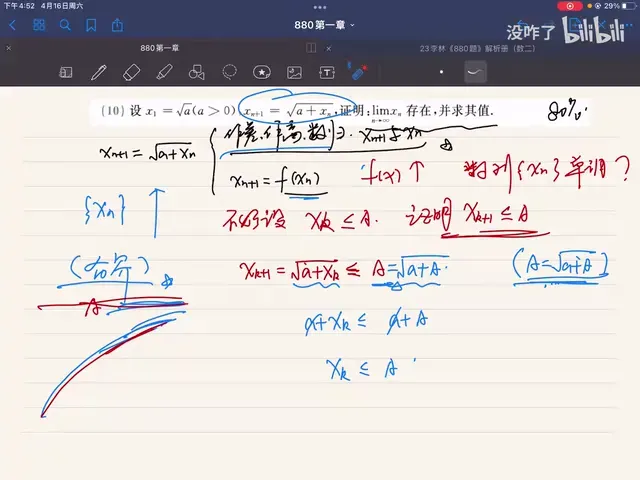 下午4:52 4月16日周六
29%
880第一章
没咋了 bilibili
880第一章
23李林《880题》解析册（数二）
(10) 设 x₁=√a(a>0), xₙ₊₁=√(a+xₙ), 证明: lim n→∞ xₙ 存在, 并求其值.
80%.
作差.作商.数归. xₙ₊₁与xₙ
xₙ₊₁=√(a+xₙ)
xₙ₊₁=f(xₙ) f(x)↑ 数列{xₙ}单调?
{xₙ} ↑
不妨设 xₖ≤A. 证明 xₖ₊₁≤A
(有界)
xₖ₊₁=√(a+xₖ) ≤ A=√(a+A). (A=√(a+A))
A
a+xₖ ≤ a+A
xₖ ≤ A